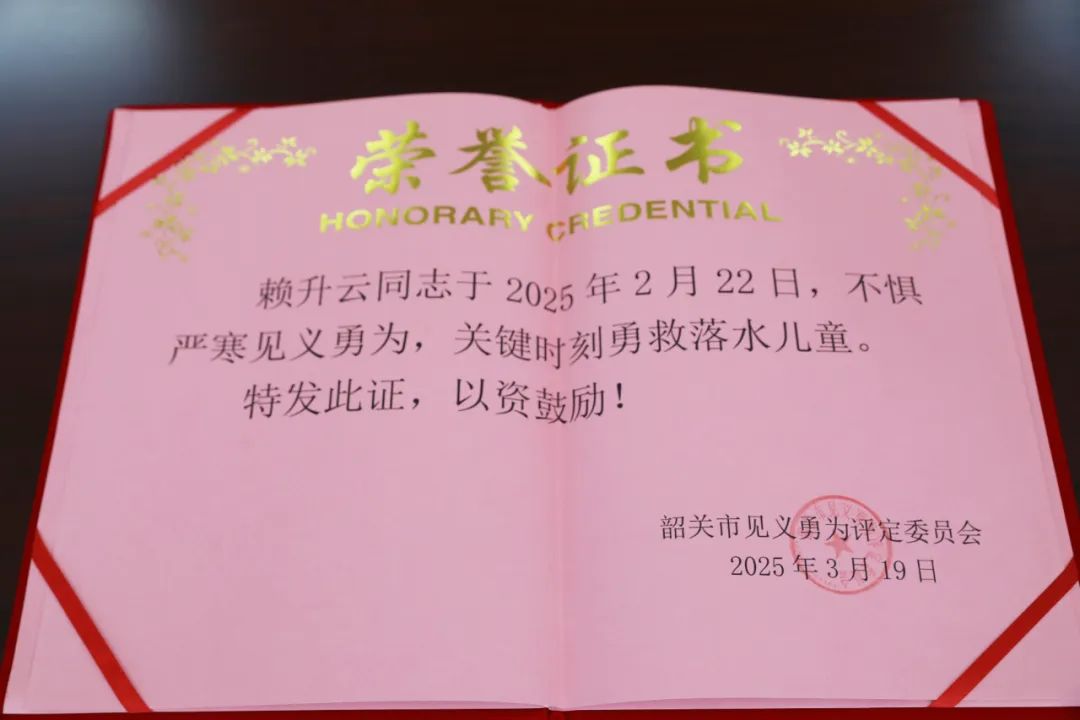 荣誉证书
HONORARY CREDENTIAL
赖升云同志于 2025 年 2 月 22 日，不惧
严寒见义勇为，关键时刻勇救落水儿童。
特发此证，以资鼓励！
韶关市见义勇为评定委员会
2025 年 3 月 19 日